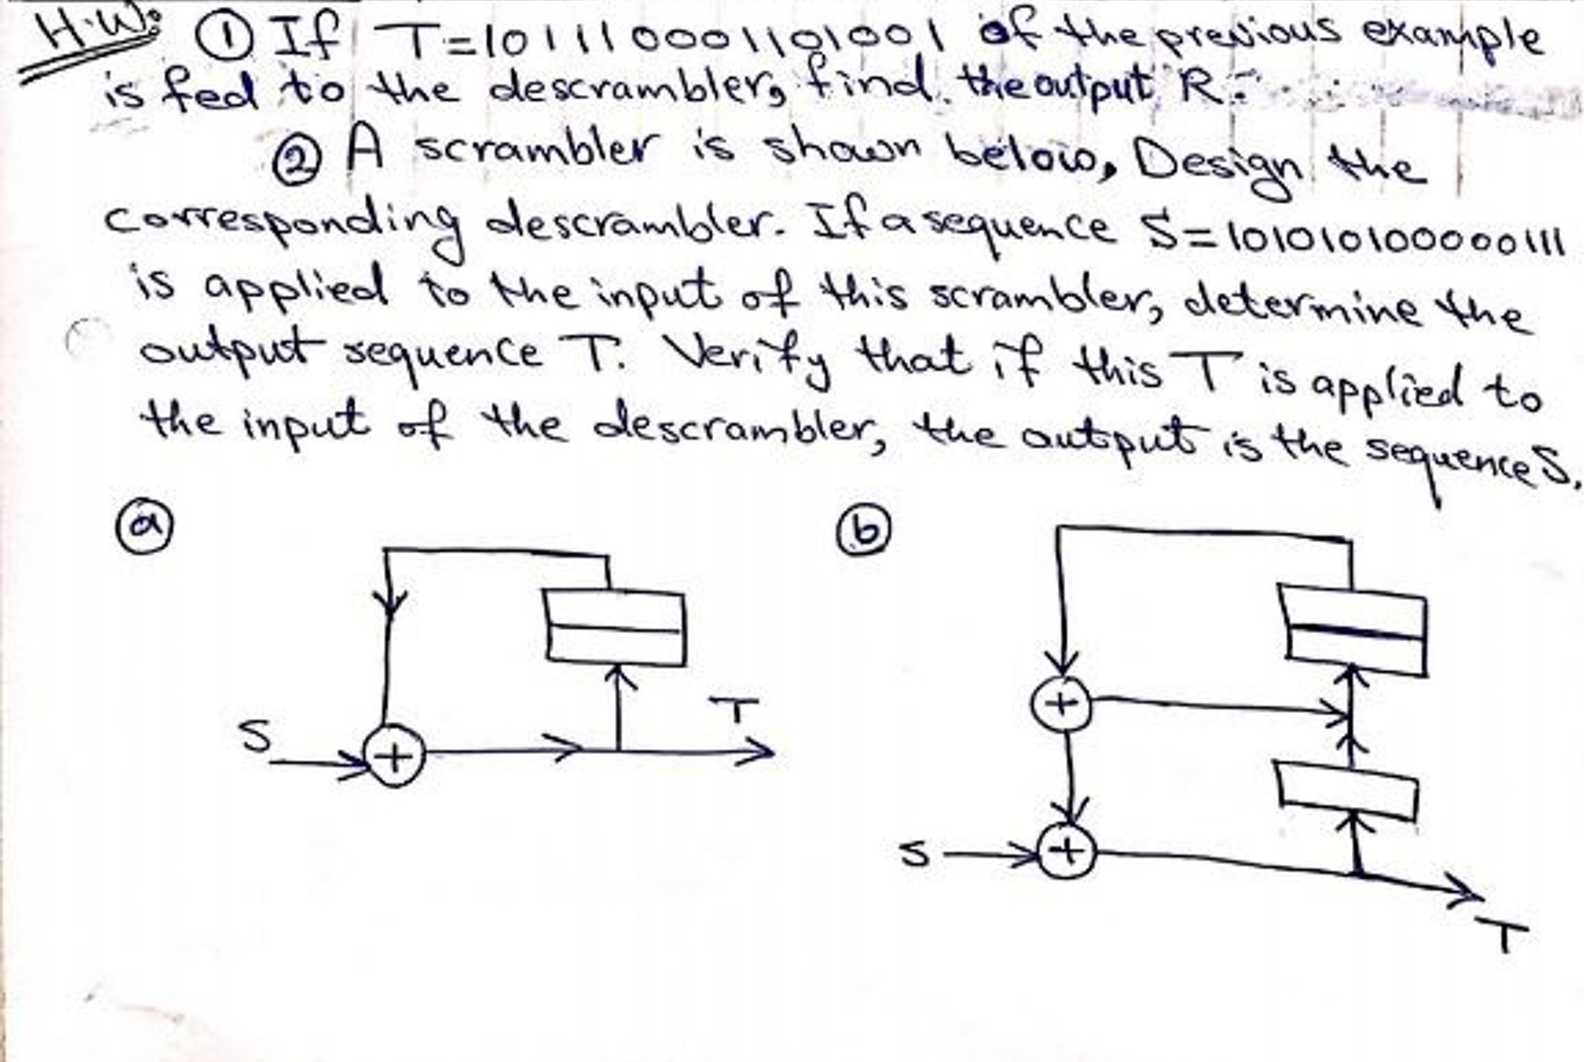 H.W: ① If T=101110001101001 of the previous example
is fed to the descrambler, find the output R.
② A scrambler is shown below, Design the
corresponding descrambler. If a sequence S=101010100000111
is applied to the input of this scrambler, determine the
output sequence T. Verify that if this T is applied to
the input of the descrambler, the output is the sequence S.
ⓐ
ⓑ
+
S
T
+
S
+
T